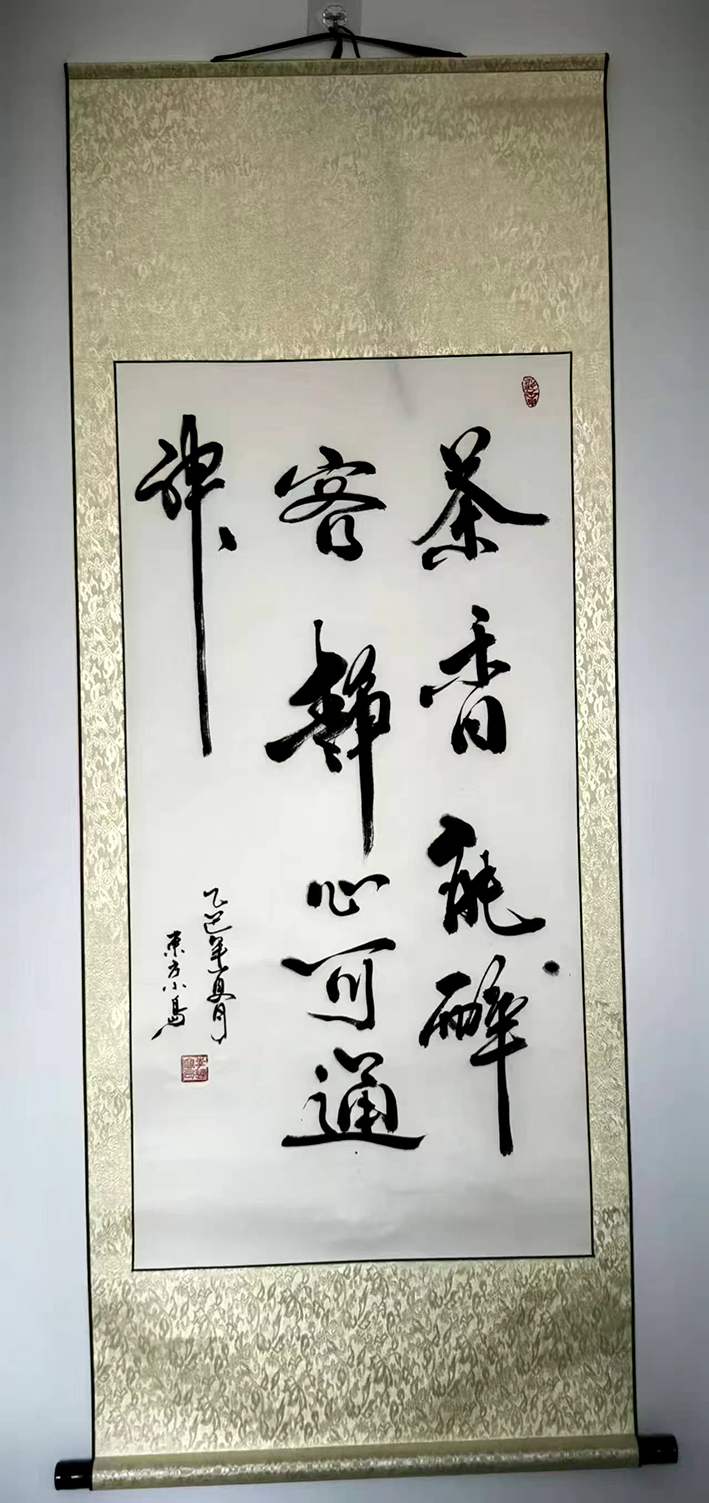 茶香能醉
客静心可通
神
乙巳年夏月
東方小島